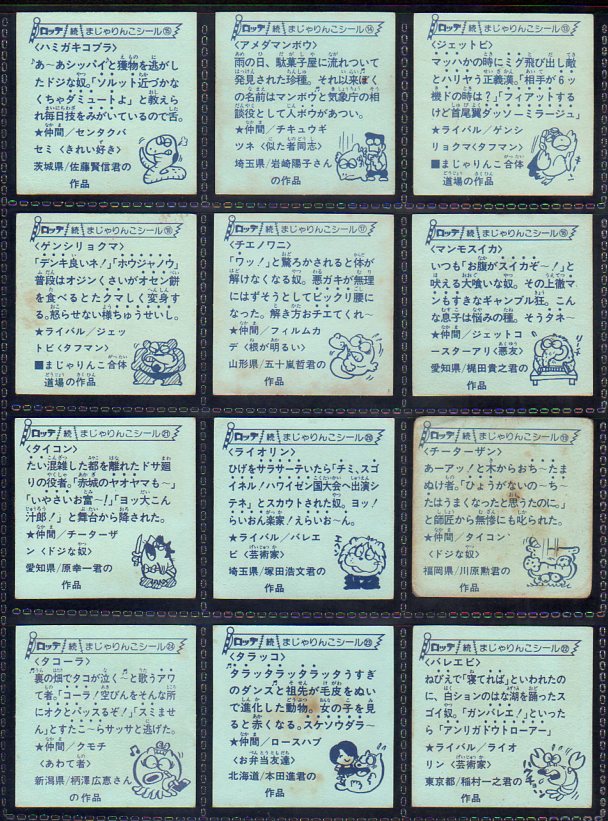 ロッテ 続 まじゃりんこシール⑮
〈ハミガキコブラ〉
あ〜あシッパイと獲物を逃がし
たドジな奴。「ソルット近づかな
くちゃダミュートよ」と教えら
れ毎日技をみがいているので舌。
★仲間/センタクバ
セミ〈きれい好き〉
茨城県/佐藤賢信君の
作品
ロッテ 続 まじゃりんこシール⑭
〈アメダマンボウ〉
雨の日、駄菓子屋に流れついて
発見された珍種。それ以来ぼく
の名前はマンボウと気象庁の相
談役として人ボウがあつい。
★仲間/チキュウギ
ツネ〈似た者同志〉
埼玉県/岩崎陽子さん
の作品
ロッテ 続 まじゃりんこシール⑬
〈ジェットビ〉
マッハかの時にミグ飛び出し敵
とハリヤう正義漢。「相手が6ッ
機ドの時は?」「フィアットする
けど首尾翼ダッソーミラージュ」
★ライバル/ゲンシ
リョクマ〈タフマン〉
■まじゃりんこ合体
道場の作品
ロッテ 続 まじゃりんこシール⑱
〈ゲンシリョクマ〉
「デンキ良いネ!」「ホウジャノウ」
普段はオジンくさいがオセン餅
を食べるとたクマしく変身す
る。怒らせない様ちゅうせいし。
★ライバル/ジェッ
トビ〈タフマン〉
■まじゃりんこ合体
道場の作品
ロッテ 続 まじゃりんこシール⑰
〈チエノワニ〉
「ワッ!」と驚ろかされると体が
解けなくなる奴。悪ガキが無理
にはずそうとしてビックリ腰に
なった。解き方おチエてくれ〜
★仲間/フィルムカ
デ〈根が明るい〉
山形県/五十嵐哲君の
作品
ロッテ 続 まじゃりんこシール⑯
〈マンモスイカ〉
いつも「お腹がスイカぞ〜!」と
吠える大喰いな奴。その上徹マ
ンもすきなギャンブル狂。こん
な息子は悩みの種。そうタネ〜
★仲間/ジェットコ
ースターアリ〈悪友〉
愛知県/梶田貴之君の
作品
ロッテ 続 まじゃりんこシール㉑
〈タイコン〉
たい混雑した都を離れたドサ廻
りの役者。「赤城のヤオヤマも〜」
「いやさいお富〜!」「ヨッ大こん
汁郎!」と舞台から降された。
★仲間/チーターザ
ン〈ドジな奴〉
愛知県/原幸一君の
作品
ロッテ 続 まじゃりんこシール⑳
〈ライオリン〉
ひげをサラサーテいたら「チミ、スゴ
イネル!ハワイゼン国大会へ出演シ
テネ」とスカウトされた奴。ヨッ!
らいおん楽家!えらいお〜ん。
★ライバル/バレエ
ビ〈芸術家〉
埼玉県/塚田浩文君の
作品
ロッテ 続 まじゃりんこシール⑲
〈チーターザン〉
あーアッ!と木からおち〜たま
ぬけ者。「ひょうがないの〜ち〜
たはうまくなったと思うたのに。」
と師匠から無惨にも叱られた。
★仲間/タイコン
〈ドジな奴〉
福岡県/川原勲君の
作品
ロッテ 続 まじゃりんこシール㉔
〈タコーラ〉
裏の畑でタコが泣く〜と歌うアワ
て者。「コーラ!空びんをそんな所
にオクとパッスるぞ!」「スミませ
ん」とすたこ〜らサッサと逃げた。
★仲間/クモチ
〈あわて者〉
新潟県/柄澤広恵さん
の作品
ロッテ 続 まじゃりんこシール㉓
〈タラッコ〉
タラッタラッタラッタうすぎ
のダンスと祖先が毛皮をぬい
で進化した動物。女の子を見
ると赤くなる。スケソウダラ〜
★仲間/ロースハブ
〈お弁当友達〉
北海道/本田進君の
作品
ロッテ 続 まじゃりんこシール㉒
〈バレエビ〉
ねびえで「寝てれば」といわれたの
に、白ションのはな湖を踊ったス
ゴイ奴。「ガンバレエ!」といった
ら「アンリガドウトローアー」
★ライバル/ライオ
リン〈芸術家〉
東京都/稲村一之君の
作品